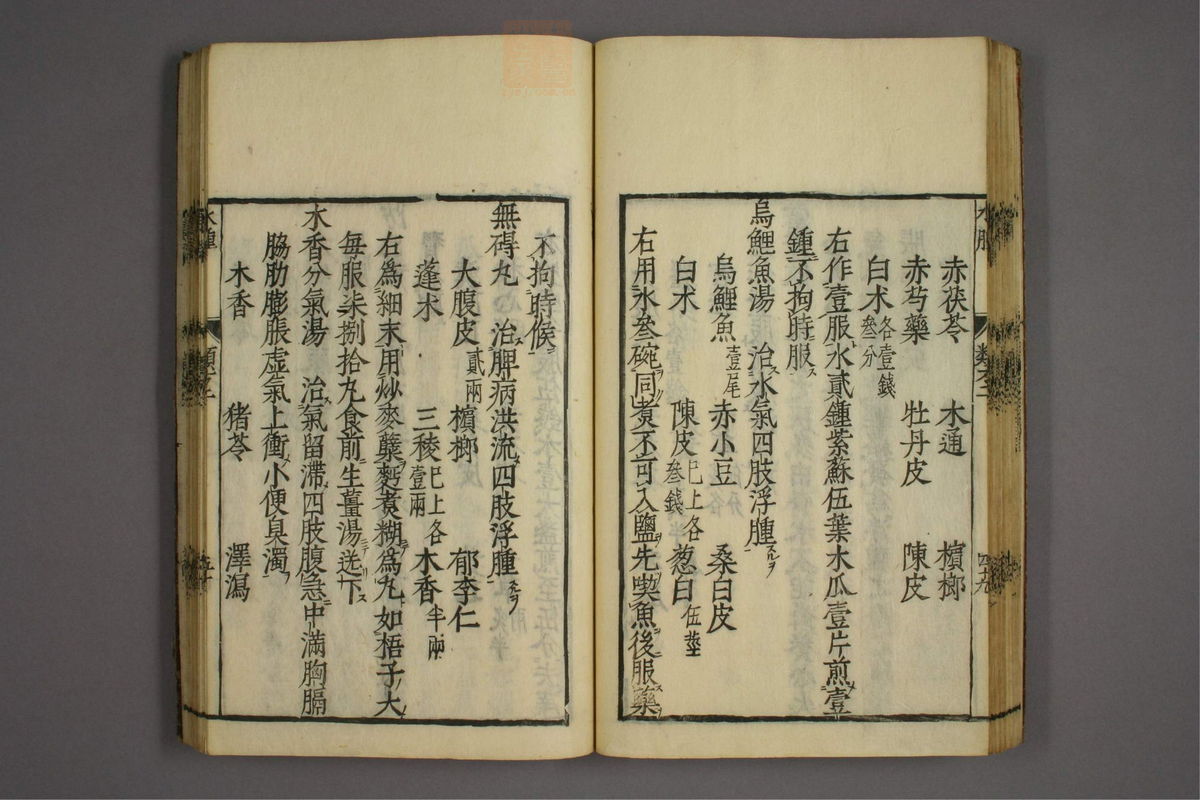 赤茯苓　木通　檳榔
赤芍藥　牡丹皮　陳皮
白朮各壹錢叁分
右作壹服水貳鍾紫蘇伍葉木瓜壹片煎壹
鍾不拘時服ス
烏鯉魚湯　治水氣四肢浮腫スルヲ
烏鯉魚壹尾　赤小豆　桑白皮
白朮　陳皮巳上各叁錢　葱白伍莖
右用水叁碗同煮不可入鹽先喫魚後服藥
不拘時候
無碍丸　治脾病洪流四肢浮腫スルヲ
大腹皮貳兩　檳榔　郁李仁
蓬朮　三稜巳上各壹兩　木香半兩
右爲細末用炒麥糵麪煮糊爲丸如梧子大
每服柒捌拾丸食前生薑湯送下ス
木香分氣湯　治氣留滯四肢腹急中滿胸膈
脇肋膨脹虛氣上衝小便臭濁
木香　猪苓　澤瀉